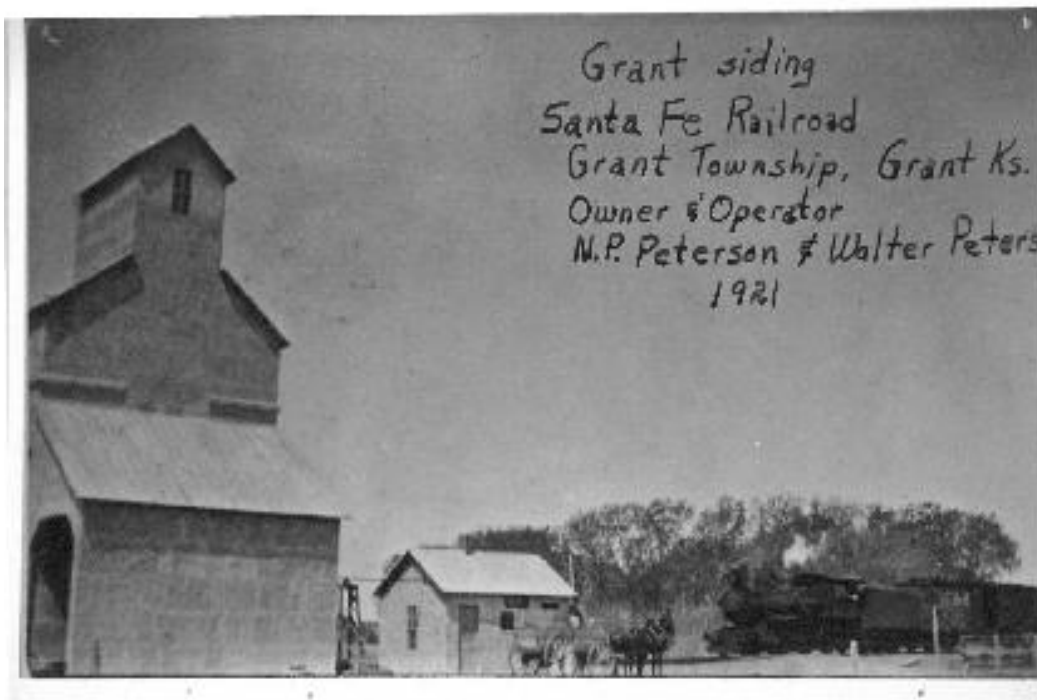 Grant siding
Santa Fe Railroad
Grant Township, Grant Ks.
Owner & Operator
N.P. Peterson & Walter Peters
1921